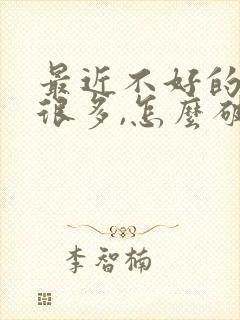 最近不好的
很多,怎麼
李智楠